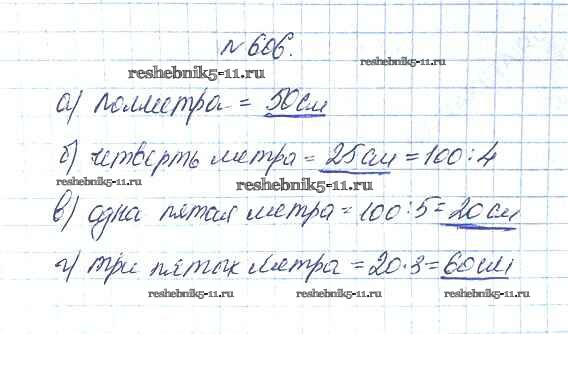 № 606.
reshebnik5-11.ru reshebnik5-11.ru
а) полметра = 50 см
б) четверть метра = 25 см = 100 : 4
reshebnik5-11.ru reshebnik5-11.ru
в) одна пятая метра = 100 : 5 = 20 см
г) три пятых метра = 20 · 3 = 60 см
reshebnik5-11.ru reshebnik5-11.ru reshebnik5-11.ru